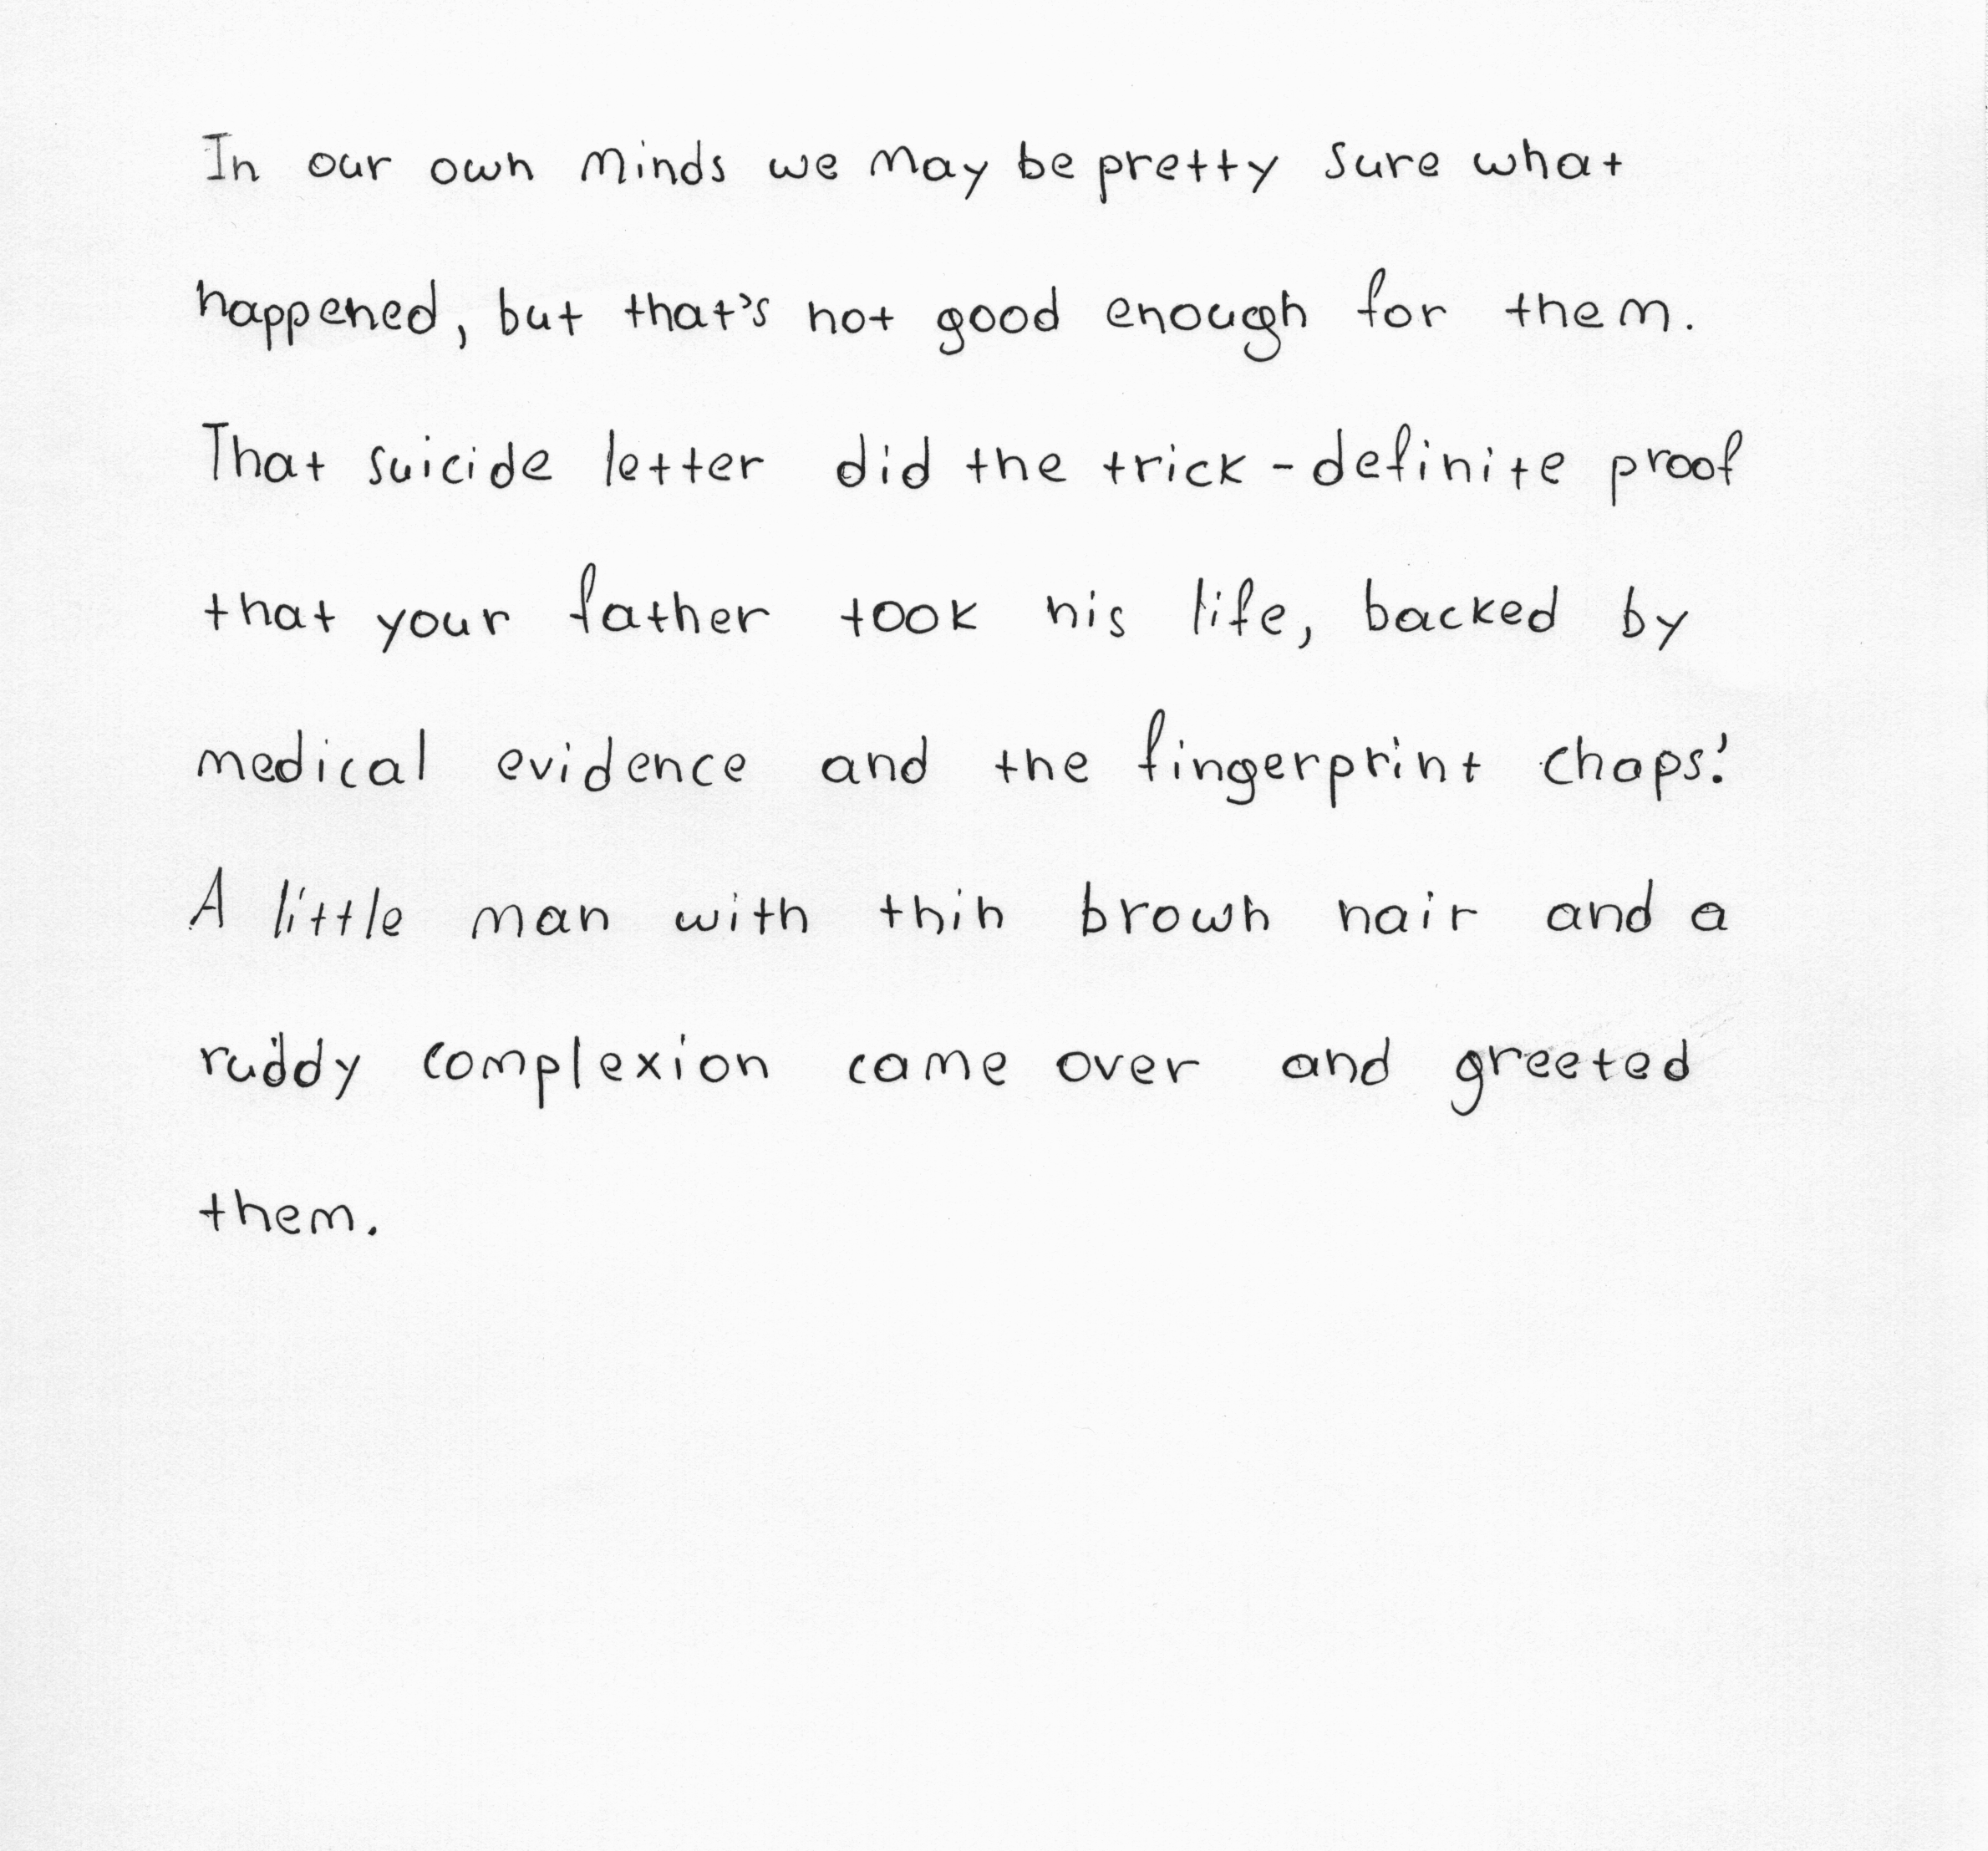 In our own minds we may be pretty sure what
happened, but that's not good enough for them.
That suicide letter did the trick - definite proof
that your father took his life, backed by
medical evidence and the fingerprint chaps.'
A little man with thin brown hair and a
ruddy complexion came over and greeted
them.